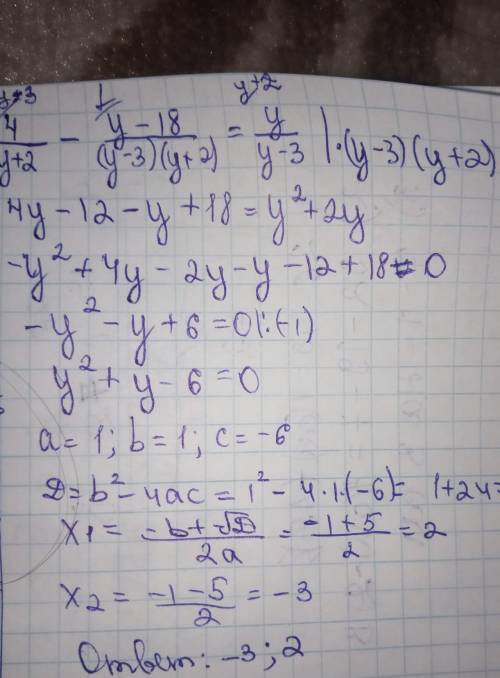 y-3 1 y+2
4/(y+2) - (y-18)/((y-3)(y+2)) = y/(y-3) |·(y-3)(y+2)
4y-12-y+18=y²+2y
-y²+4y-2y-y-12+18=0
-y²-y+6=0|:(-1)
y²+y-6=0
a=1; b=1; c=-6
D=b²-4ac=1²-4·1·(-6)=1+24=
x₁=(-b+√D)/2a=(-1+5)/2=2
x₂=(-1-5)/2=-3
Ответ: -3;2